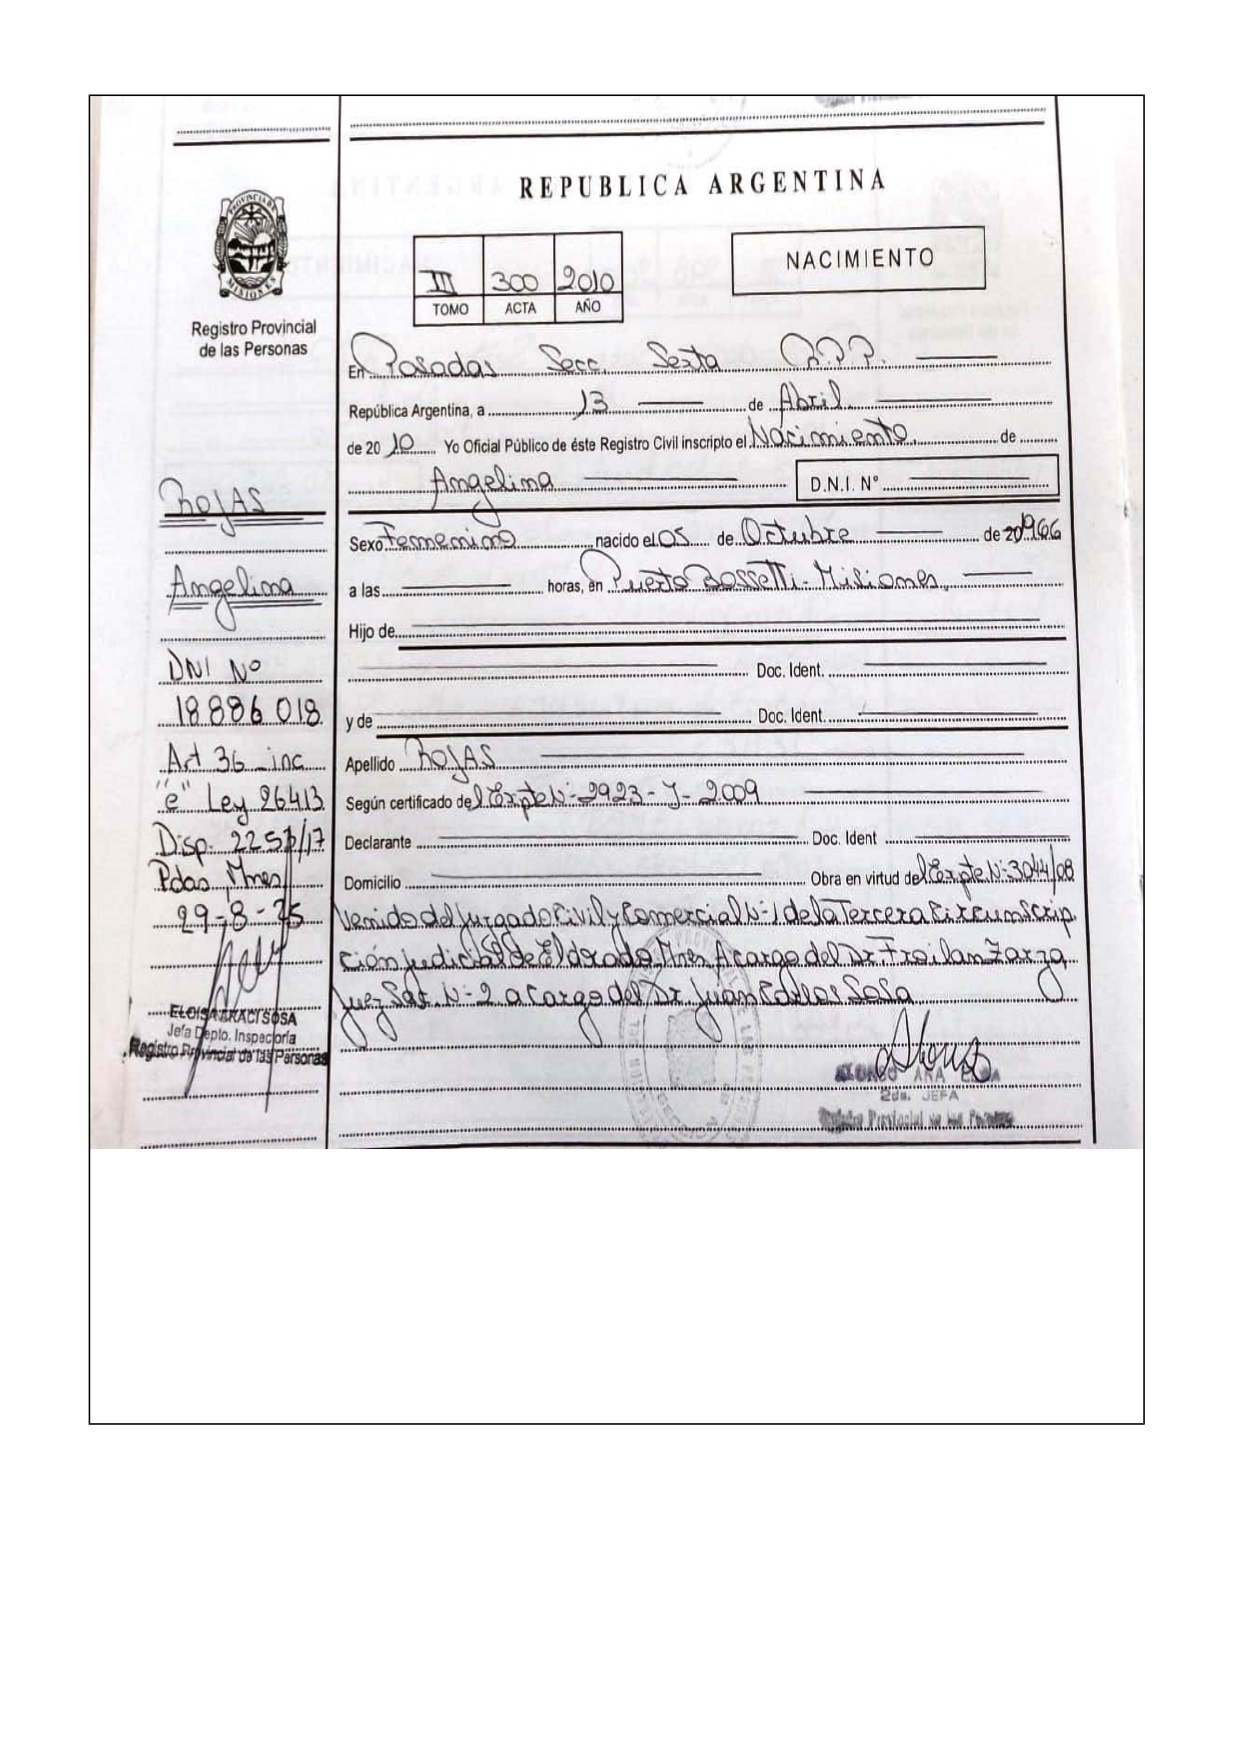 REPUBLICA ARGENTINA
PROVINCIA DE
MISIONES
Registro Provincial
de las Personas
NACIMIENTO
III 300 2010
TOMO ACTA AÑO
En Posadas Secc. Sexta R.P.P.
República Argentina, a 13 de Abril
de 20 10 Yo Oficial Público de éste Registro Civil inscripto el Nacimiento de
Angelina D.N.I. N°
Sexo Femenino nacido el 05 de Octubre de 20 1966
a las horas, en Puerto Bossetti - Misiones
Hijo de
Doc. Ident.
y de Doc. Ident.
Apellido ROJAS
Según certificado del Expte N:-2923-J-2009
Declarante Doc. Ident
Domicilio Obra en virtud del Expte N:3044/08
Venido del Juzgado Civil y Comercial N:1 de la Tercera Circunscrip
ción judicial de Eldorado, Mnes A cargo del Dr. Froilan Zarza
Juez Sec. N:-2 a cargo del Dr. Juan Sosa
2da. JEFA
Registro Provincial de las Personas
ROJAS
Angelina
DNI Nº
18 886 018
Art 36 inc
"e" Ley 26413
Disp. 2257/17
Pdas, Mnes
29-8-25
ELOISA ARACI SOSA
Jefa Depto. Inspectoría
Registro Provincial de las Personas